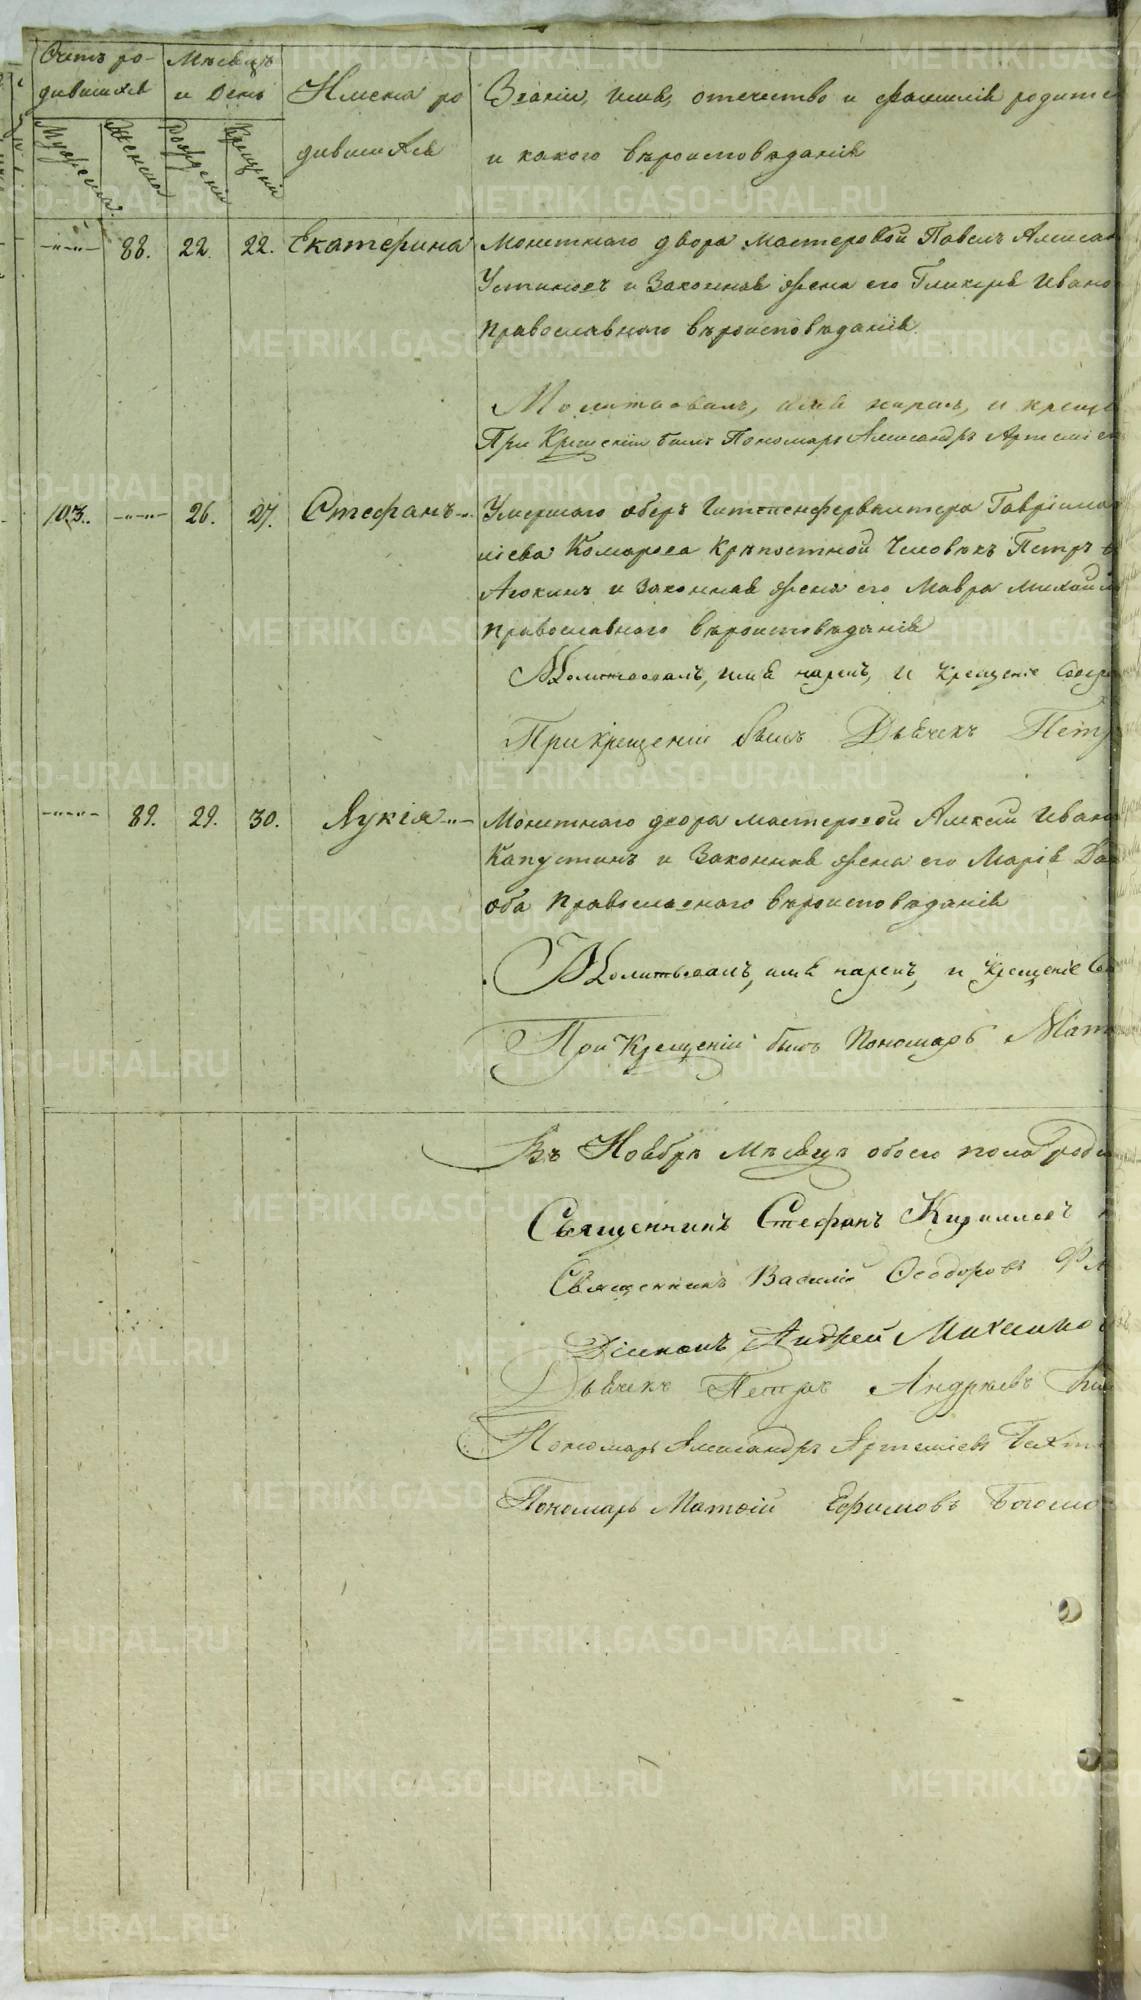 Счетъ ро-
дившихся
Мѣсяцъ
и День
Имена ро
дившихся
Званіи, имя, отечество и фамилія родите
и какого вѣроисповѣданія
Мужеска.
Женска
Рожденія
Крещенія
88. 22. 22. Екатерина
Монетнаго двора мастеровой Павелъ Алексан
Устиновъ и Законная жена его Гликерія Ивано
Православнаго вѣроисповѣданія.
Молитвовалъ, имя нарекъ, и креще
При Крещеніи былъ Пономарь Александръ Артеміев
103. 26. 27. Стефанъ
Умершаго оберъ Гиттенфервалтера Гавріила
ліева Комарова Крѣпостной Человѣкъ Петръ
и Законная жена его Мавра Михайл
Православнаго вѣроисповѣданія
Молитвовалъ, имя нарекъ, и Крещеніе Совер
При крещеніи былъ Дьячекъ Петр
89. 29. 30. Лукія
Монетнаго двора мастеровой Алексѣй Ивано
Капустинъ и Законная жена его Марія Да
оба Православнаго вѣроисповѣданія
Молитвовалъ, имя нарекъ, и Крещеніе Сов
При Крещеніи былъ Пономарь Мат
Въ Ноябрѣ мѣсяцѣ обоего пола роди
Священникъ Стефанъ Кирилловъ
Священникъ Василій Ѳеодоровъ
Діаконъ Андрей Михайлов
Дьячекъ Петръ Андреевъ
Пономарь Александръ Артеміевъ
Пономарь Матѳій Ефимовъ Богомо
METRIKI.GASO-URAL.RU